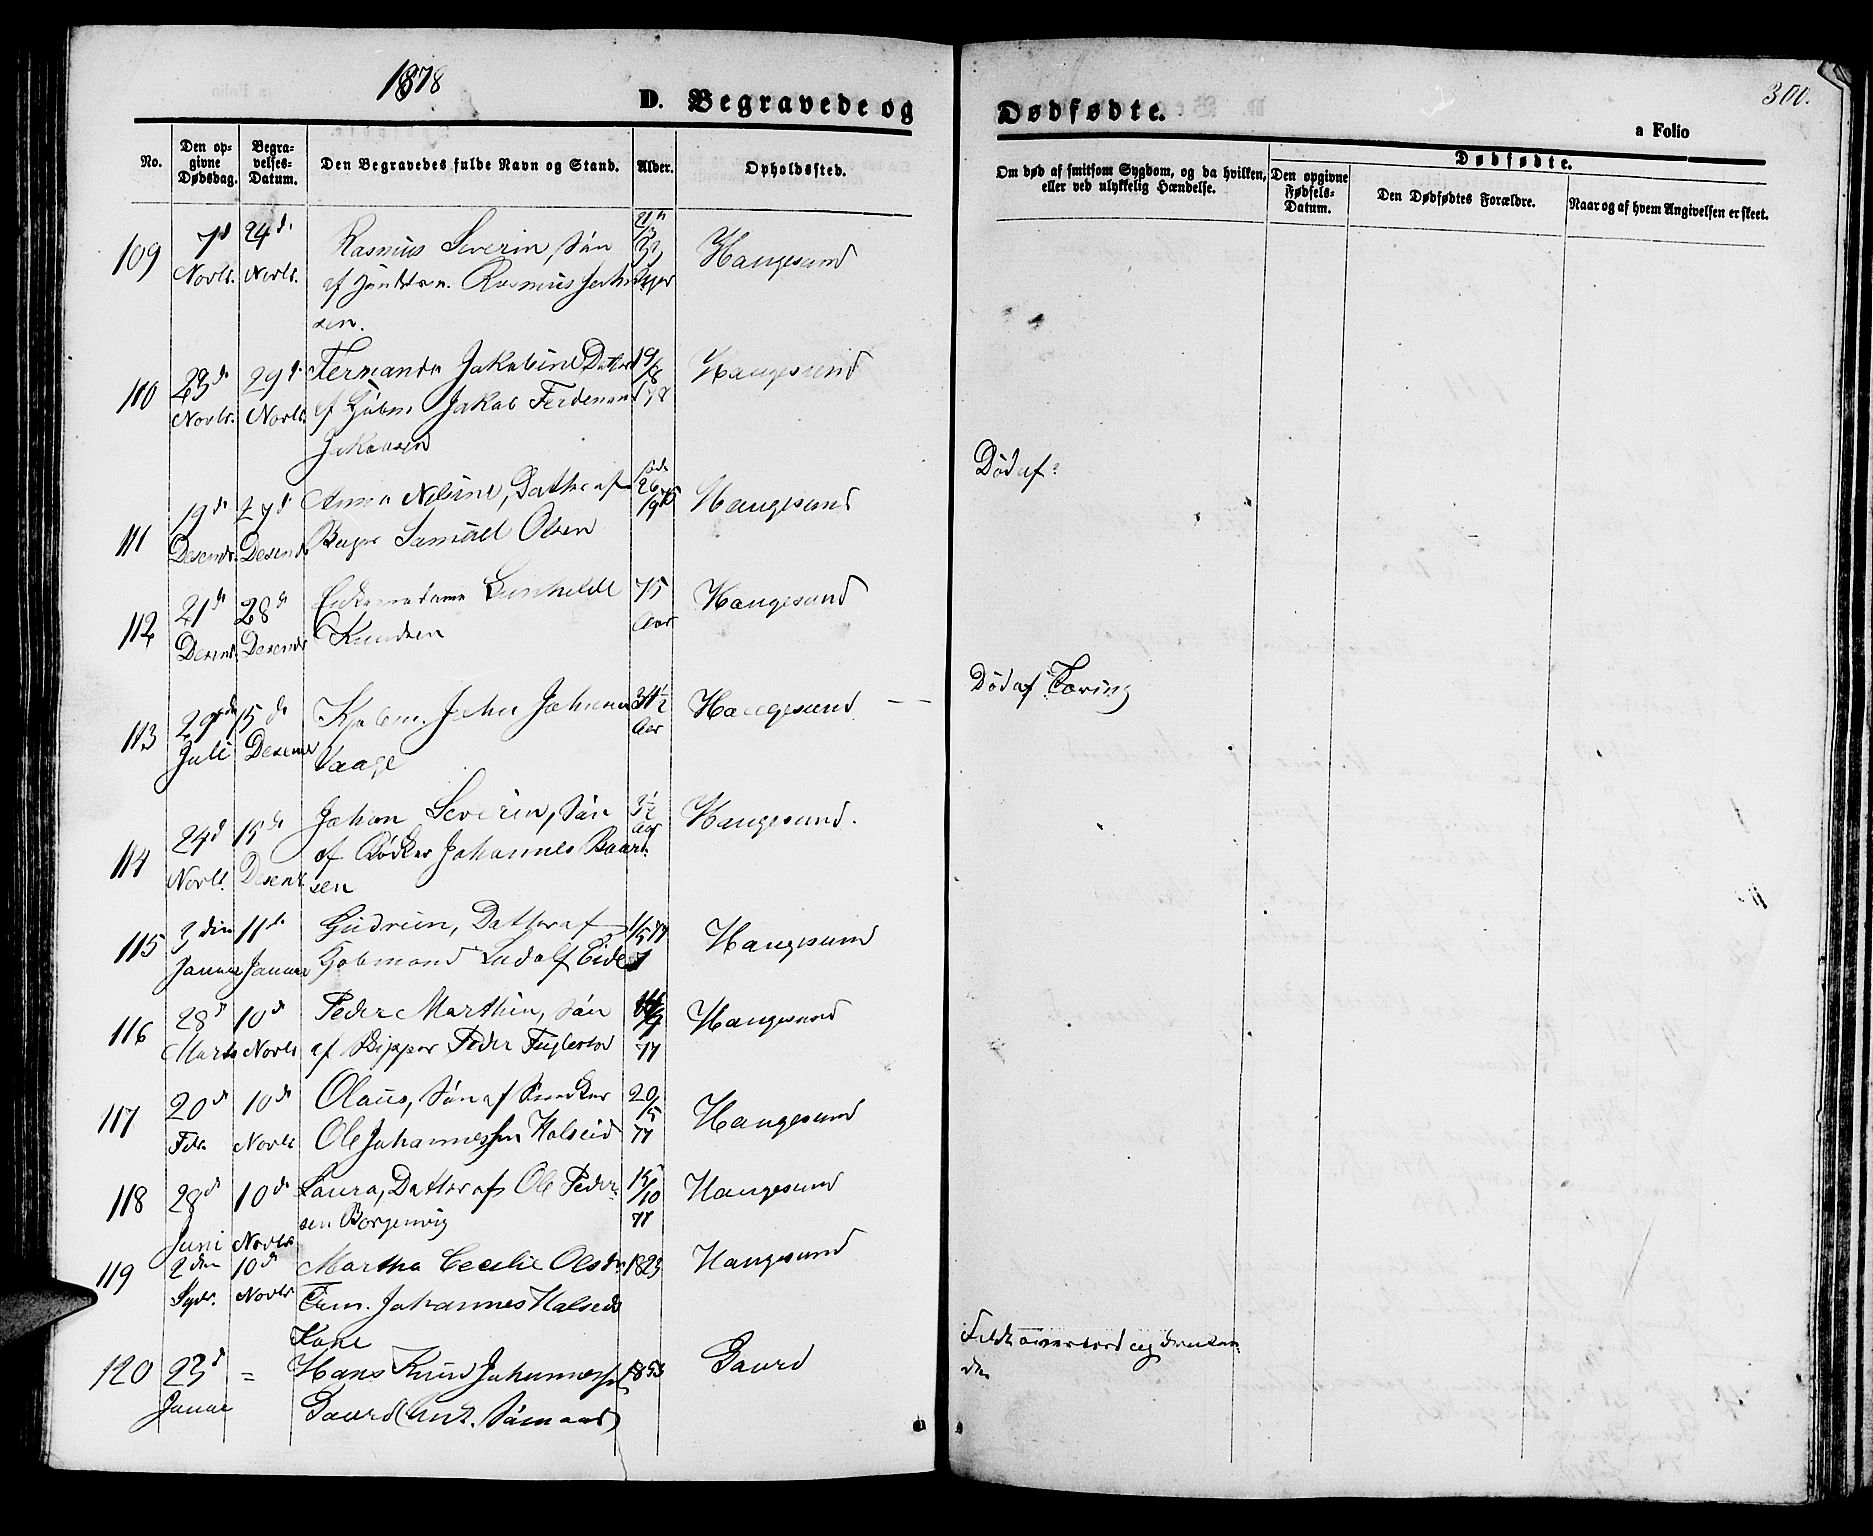 1878
D. Begravede og
Dødfødte.
300.
a Folio
No.
Den op-
givne
Dødsdag.
Begra-
velses-
Datum.
Den Begravedes fulde Navn og Stand.
Alder.
Opholdssted.
Om død af smitsom Sygdom, og da hvilken,
eller ved ulykkelig Hændelse.
Dødfødte.
Den opgivne
Fødsels-
Datum.
Den Dødfødtes Forældre.
Naar og af hvem Angivelsen er skeet.
109
7d
Novbr.
24d
Novbr.
Rasmus Severin, Søn
af Rasmus
sen.
Haugesund
110
23d
Novbr.
29d
Novbr.
Fernanda Jakobine, Datter
af Kjøbm. Jakob Ferdenand
Jakobsen
19/8
78
Haugesund
111
19d
Desembr.
27d
Desembr
Anna Neline, Datter af
Bager Samuel Olsen
26
Haugesund
Død af:
112
21d
Desembr.
28d
Desembr
Enkemadame Gunhilde
Knudsen
75
Aar
Haugesund
113
29de
Juli
15de
Desembr
Kjøbm. John Johnsen
Vaage
31½
Aar
Haugesund
Død af Tæring
114
24d
Novbr.
15de
Desembr
Johan Severin, Søn
af Bødker Johannes Baard-
sen
3½
Aar
Haugesund.
115
3den
Januar
11de
Januar
Gudrun, Datter af
Kjøbmand Ludolf Eide
1/5 77
Haugesund
116
28d
Marts
10d
Novbr
Peder Marthin, Søn
af Skipper Peder Fuglestad
77
Haugesund
117
20d
Febr.
10de
Novbr
Olaus, Søn af Snedker
Ole Johannessen Halseid
20/5
77
Haugesund
118
28d
Juni
10de
Novbr
Laura, Datter af Ole Peder-
sen Borgenvig
15/10
77
Haugesund
119
2den
10d
Novbr
Martha Cecilie Olsdr
Tøm. Johannes Halseids
Kone
1823
Haugesund
120
23d
Januar
=
Hans Knud Johannessen
Gaard (Ugt. Sømand)
1853
Gaard
Faldt overbord og druknede